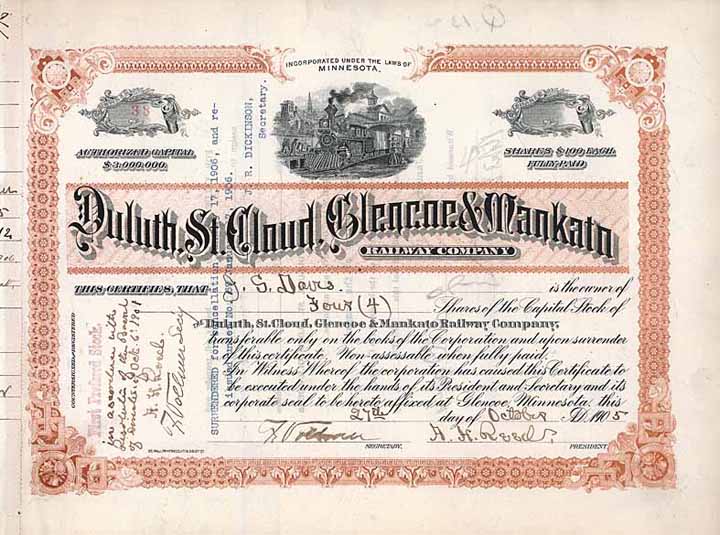 INCORPORATED UNDER THE LAWS OF
MINNESOTA.
38
AUTHORIZED CAPITAL
$3,000,000.
SHARES $100, EACH.
FULLY PAID
Duluth, St. Cloud, Glencoe & Mankato
RAILWAY COMPANY
THIS CERTIFIES, THAT J. G. Davis is the owner of
Four (4) Shares of the Capital Stock of
The Duluth, St. Cloud, Glencoe & Mankato Railway Company,
transferable only on the books of the Corporation and upon surrender
of this certificate. Non-assessable when fully paid.
In Witness Whereof, the corporation has caused this Certificate to
be executed under the hands of its President and Secretary and its
corporate seal to be hereto affixed at Glencoe, Minnesota, this
27th day of October A.D. 1905
SECRETARY. PRESIDENT.
COUNTERSIGNED & REGISTERED
in accordance with
Resolution of the Board
Oct 6, 1901
Secy
SURRENDERED for cancellation 17, 1906, and re-
1906.
J. R. DICKINSON,
Secretary.